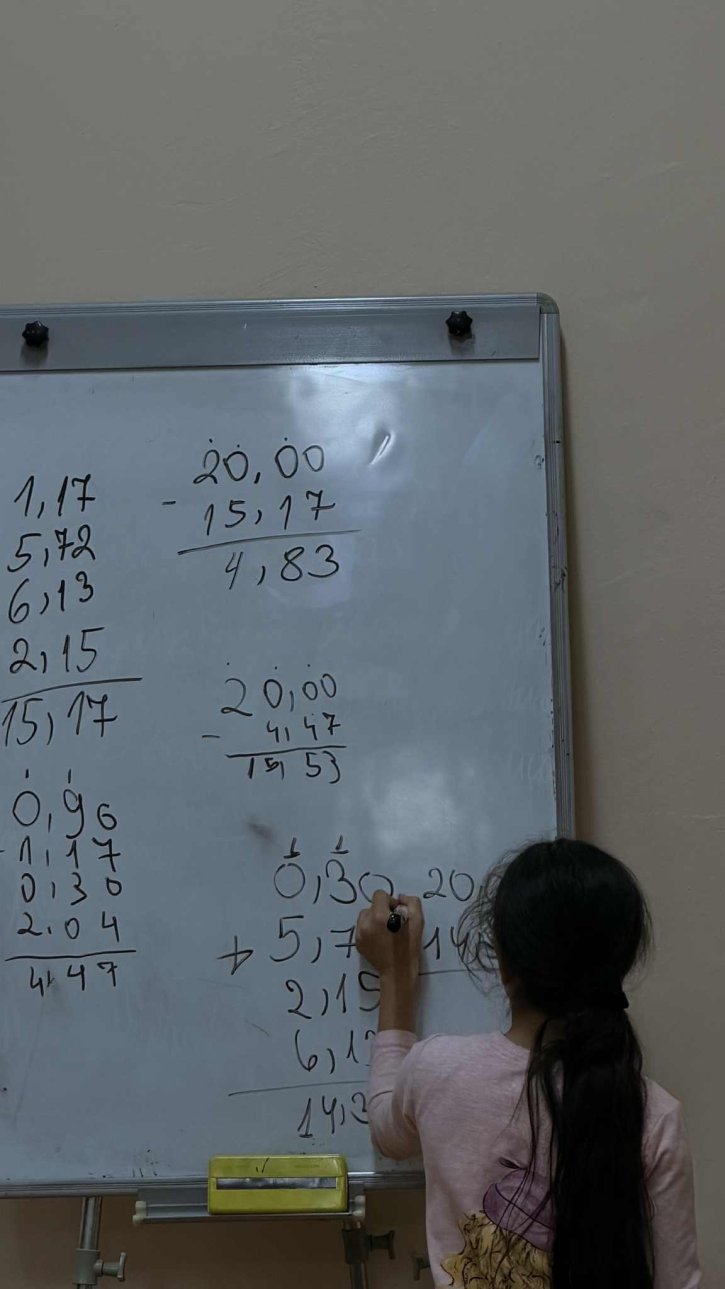 1,17
5,72
6,13
2,15
15,17
20,00
- 15,17
4,83
0,96
1,17
0,30
2,04
4,47
20,00
- 4,47
15,53
1 1
0,30
+ 5,7
2,15
6,1
14,3
20,
14,